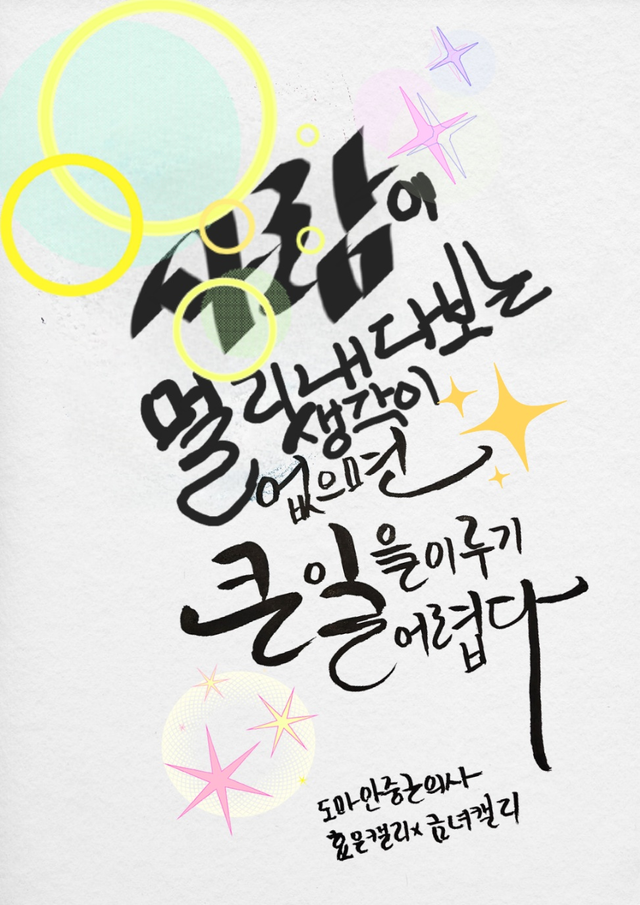 사람이
멀리 내다보는
생각이
없으면
큰일을 이루기
어렵다
도마 안중근의사
효은캘리x금녀캘리